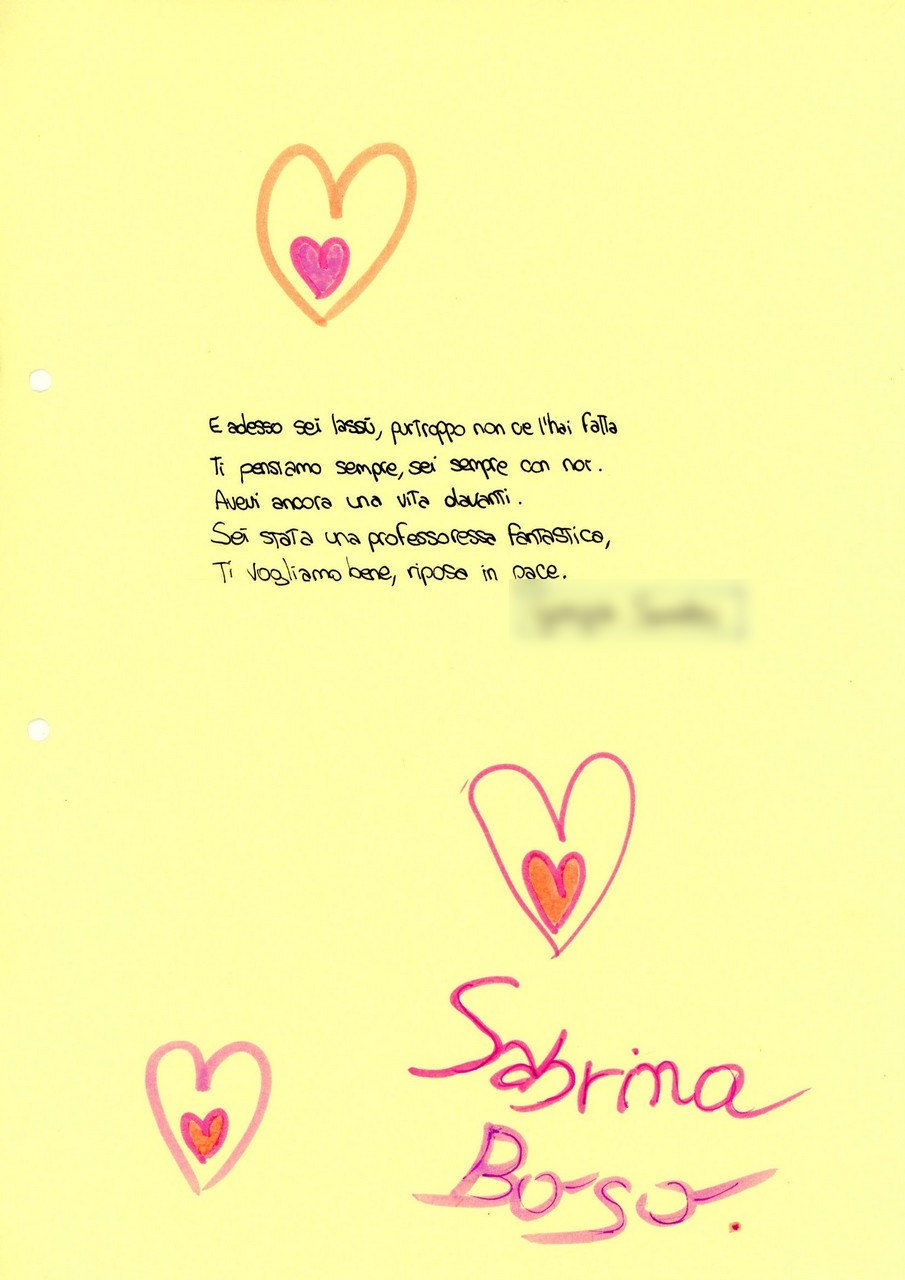 E adesso sei lassù, purtroppo non ce l'hai fatta
Ti pensiamo sempre, sei sempre con noi.
Avevi ancora una vita davanti.
Sei stata una professoressa fantastica,
Ti vogliamo bene, riposa in pace.
Sabrina
Boso.